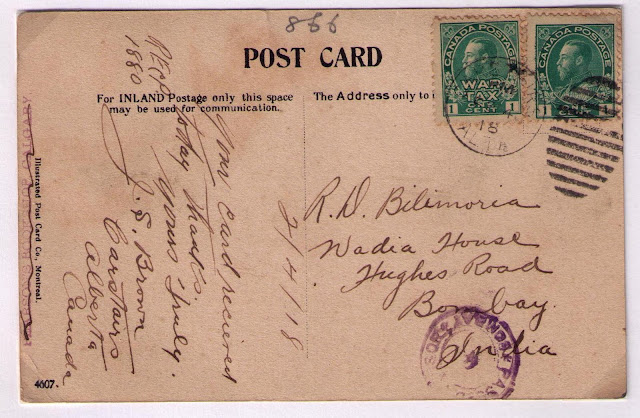 866
POST CARD
For INLAND Postage only this space
may be used for communication.
The Address only to
CANADA POSTAGE
WAR
TAX
1 CENT 1
CANADA POSTAGE
1 1
18
1880
Your card recieved
today Thanks.
Yours Truly.
J. S. Brown
Carstairs
Alberta
Canada
2/4/18
R. D. Bilimoria
Wadia House
Hughes Road
Bombay.
India
Illustrated Post Card Co., Montreal.
4607.